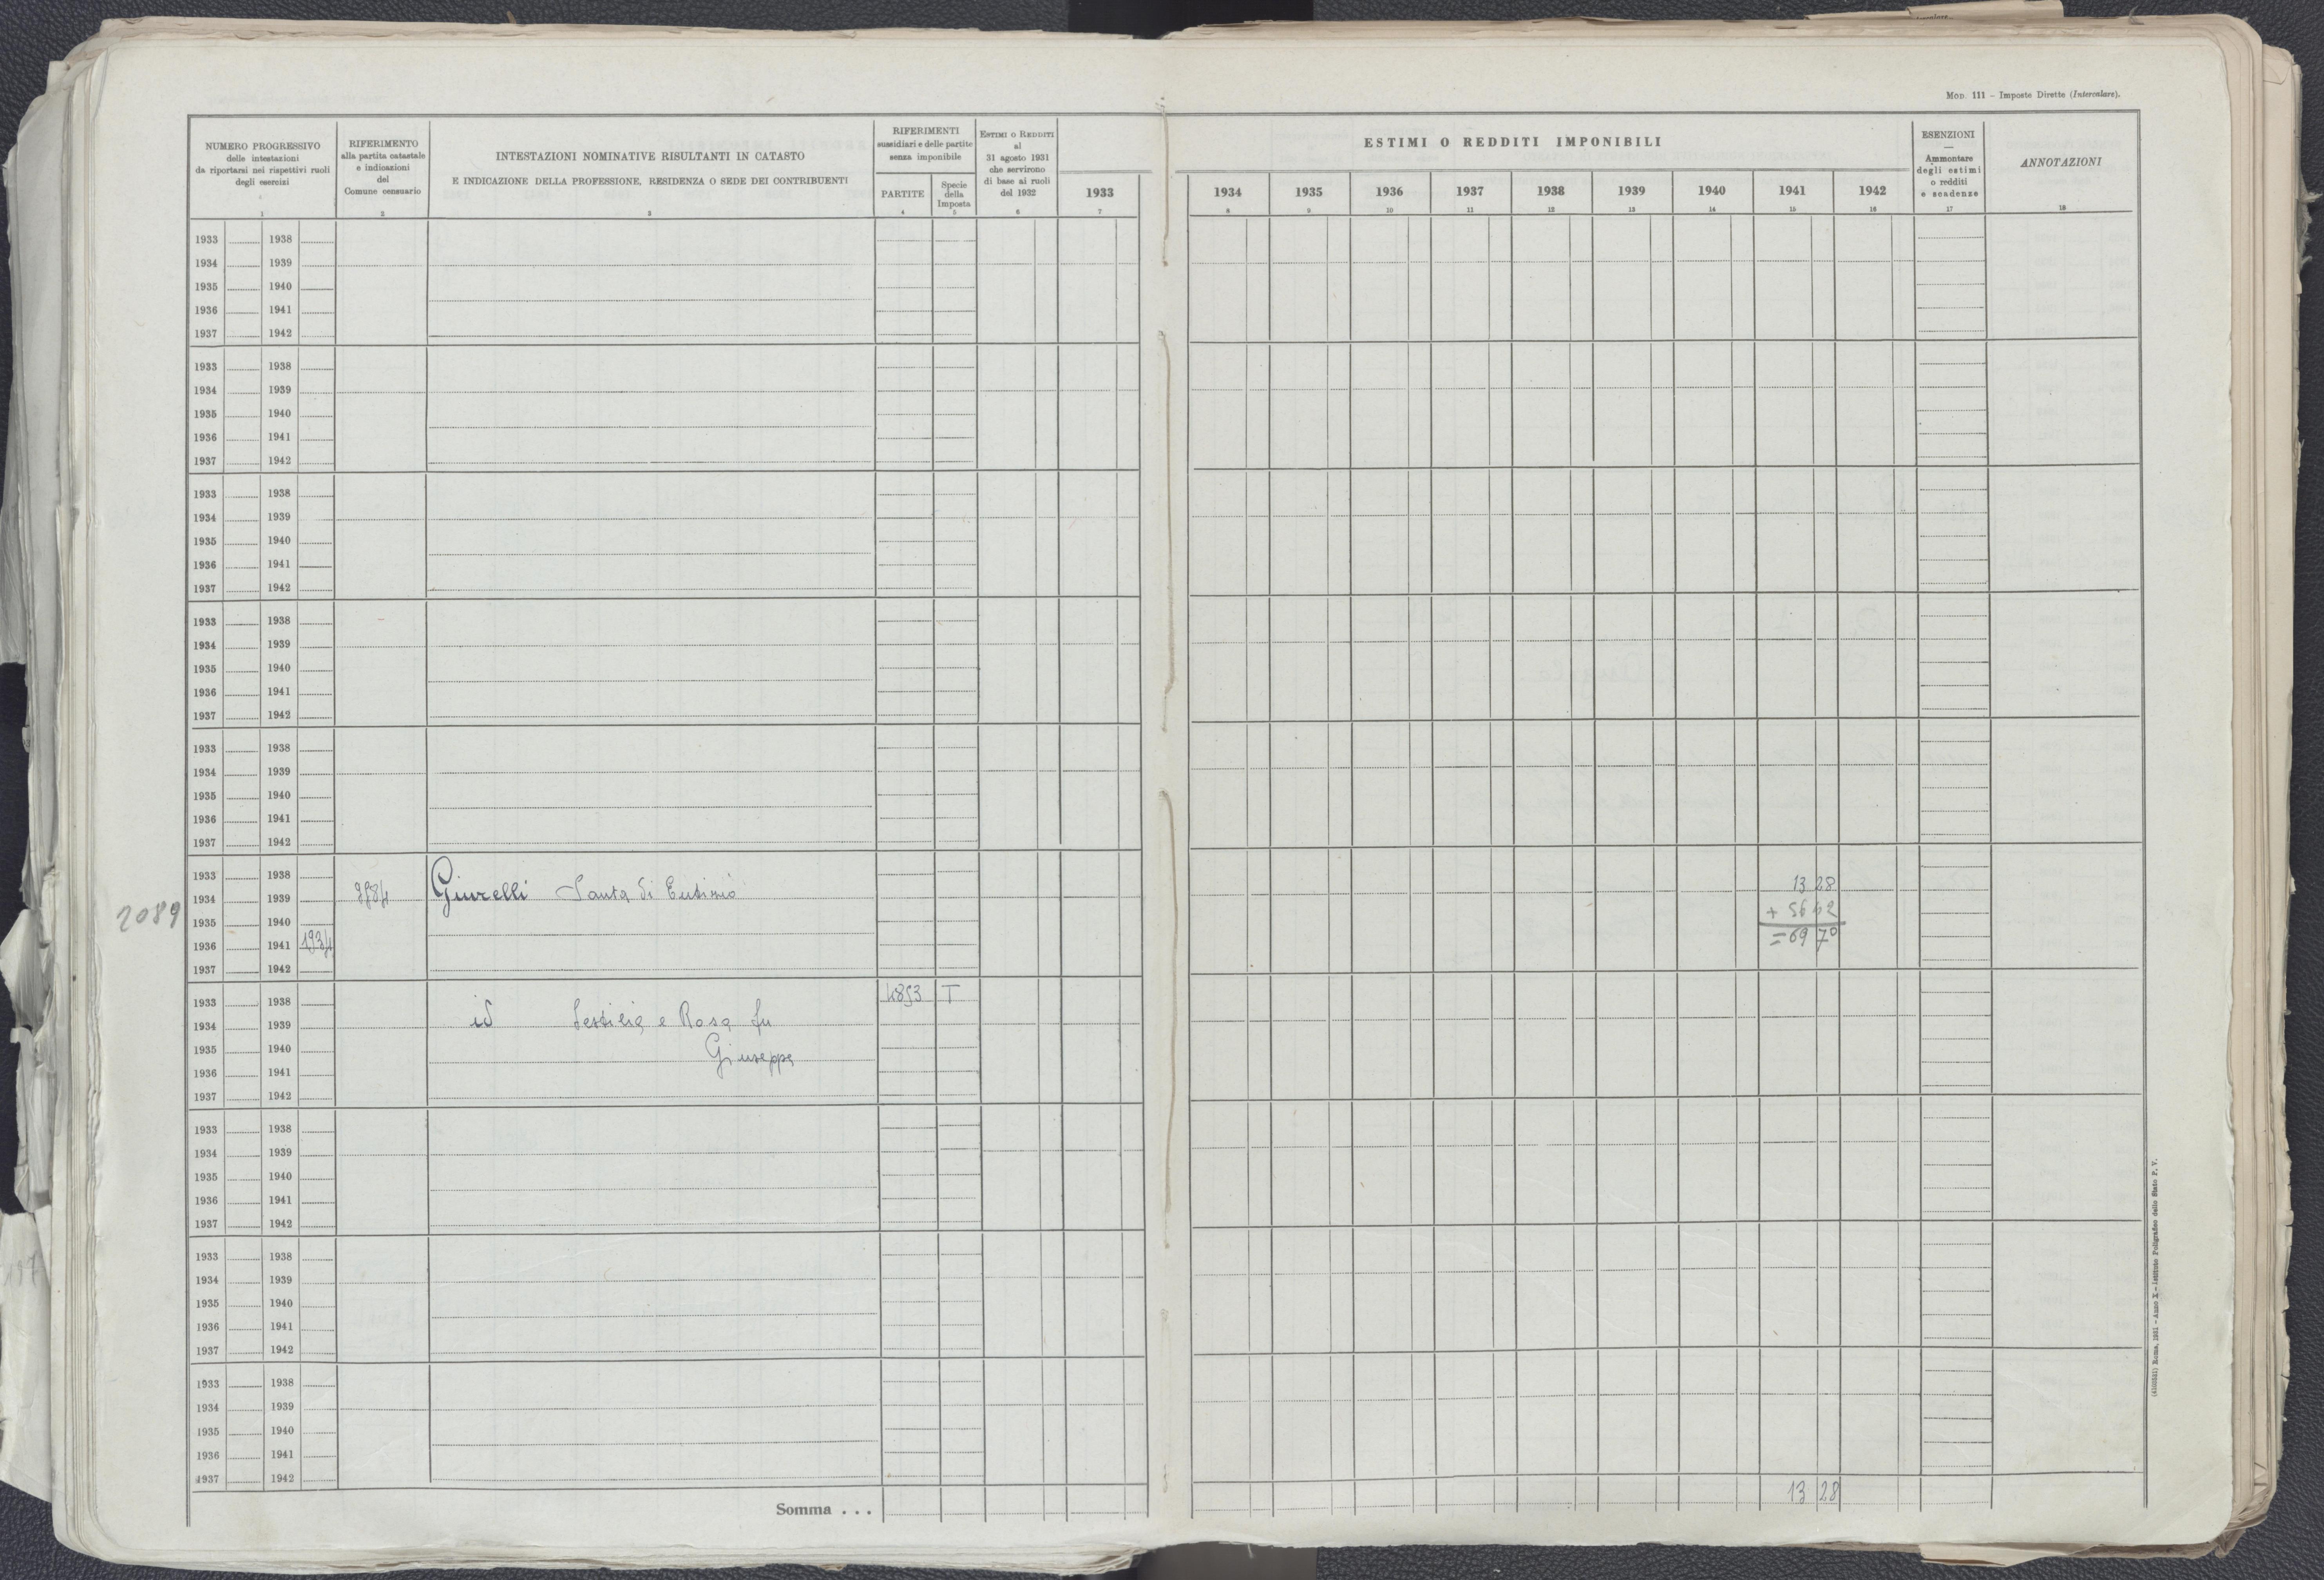 MOD. 111 – Imposte Dirette (Intercalare).
NUMERO PROGRESSIVO
delle intestazioni
da riportarsi nei rispettivi ruoli
degli esercizi
1
RIFERIMENTO
alla partita catastale
e indicazioni
del
Comune censuario
2
INTESTAZIONI NOMINATIVE RISULTANTI IN CATASTO
E INDICAZIONE DELLA PROFESSIONE, RESIDENZA O SEDE DEI CONTRIBUENTI
3
RIFERIMENTI
sussidiari e delle partite
senza imponibile
PARTITE
4
Specie
della
Imposta
5
ESTIMI O REDDITI
al
31 agosto 1931
che servirono
di base ai ruoli
del 1932
6
1933
7
ESTIMI O REDDITI IMPONIBILI
1934 1935 1936 1937 1938 1939 1940 1941 1942
8 9 10 11 12 13 14 15 16
ESENZIONI
—
Ammontare
degli estimi
o redditi
e scadenze
17
ANNOTAZIONI
18
1933 1938
1934 1939
1935 1940
1936 1941
1937 1942
1933 1938
1934 1939
1935 1940
1936 1941
1937 1942
1933 1938
1934 1939
1935 1940
1936 1941
1937 1942
1933 1938
1934 1939
1935 1940
1936 1941
1937 1942
1933 1938
1934 1939
1935 1940
1936 1941
1937 1942
1933 1938 13 28
1934 1939 Giurelli Santa di Eutimio
2089 1935 1940 + 56 42
1936 1941 1934 = 69 70
1937 1942
1933 1938 4853 T
1934 1939 id Letizia e Rosa fu
1935 1940 Giuseppe
1936 1941
1937 1942
1933 1938
1934 1939
1935 1940
1936 1941
1937 1942
1933 1938
1934 1939
1935 1940
1936 1941
1937 1942
1933 1938
1934 1939
1935 1940
1936 1941
1937 1942
Somma . . . 13 28
Roma, 1931 – Anno X – Istituto Poligrafico dello Stato P. V.